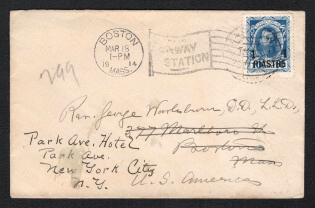 BOSTON
MAR 18
1-PM
19 14
MASS.
STATION
1 1
PIASTRE
299
Rev. George Washburn, D.D. LL.D.,
277 Marlboro St
Boston
Mass
Park Ave. Hotel
Park Ave.
New York City
N.Y.
U. S. America